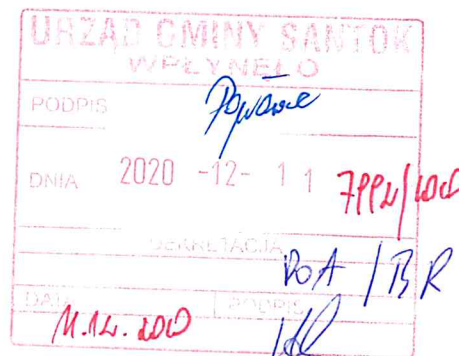 URZĄD GMINY SANTOK
WPŁYNĘŁO
PODPIS
DNIA 2020 -12- 11
DEKRETACJA
BOA / BR
DATA PODPIS
11.12.2020